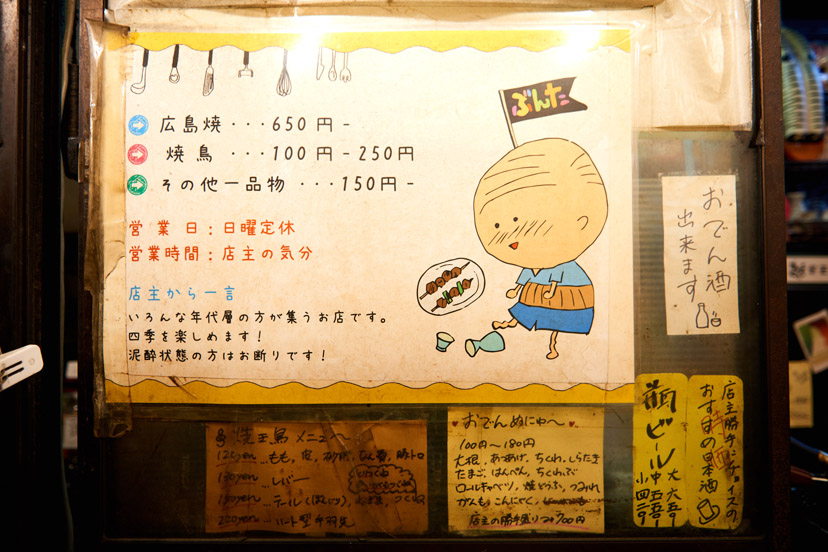 ぶんた
広島焼・・・650円-
焼鳥・・・100円-250円
その他一品物・・・150円-
営業日:日曜定休
営業時間:店主の気分
店主から一言
いろんな年代層の方が集うお店です。
四季を楽しめます!
泥酔状態の方はお断りです!
おでん酒
出来ます
店主勝手にチョイスの
おすすめ日本酒
瓶ビール
大 六五〇
中 五五〇
焼鳥メニュー
120yen…もも、皮、砂肝、なん骨、豚トロ
130yen…レバー
おでんめにゅ〜
100円〜180円
大根、あつあげ、ちくわ、しらたき
たまご、はんぺん、ちくわぶ
ロールキャベツ、焼とうふ、つみれ
がんも、こんにゃく
店主の勝手盛り 700円